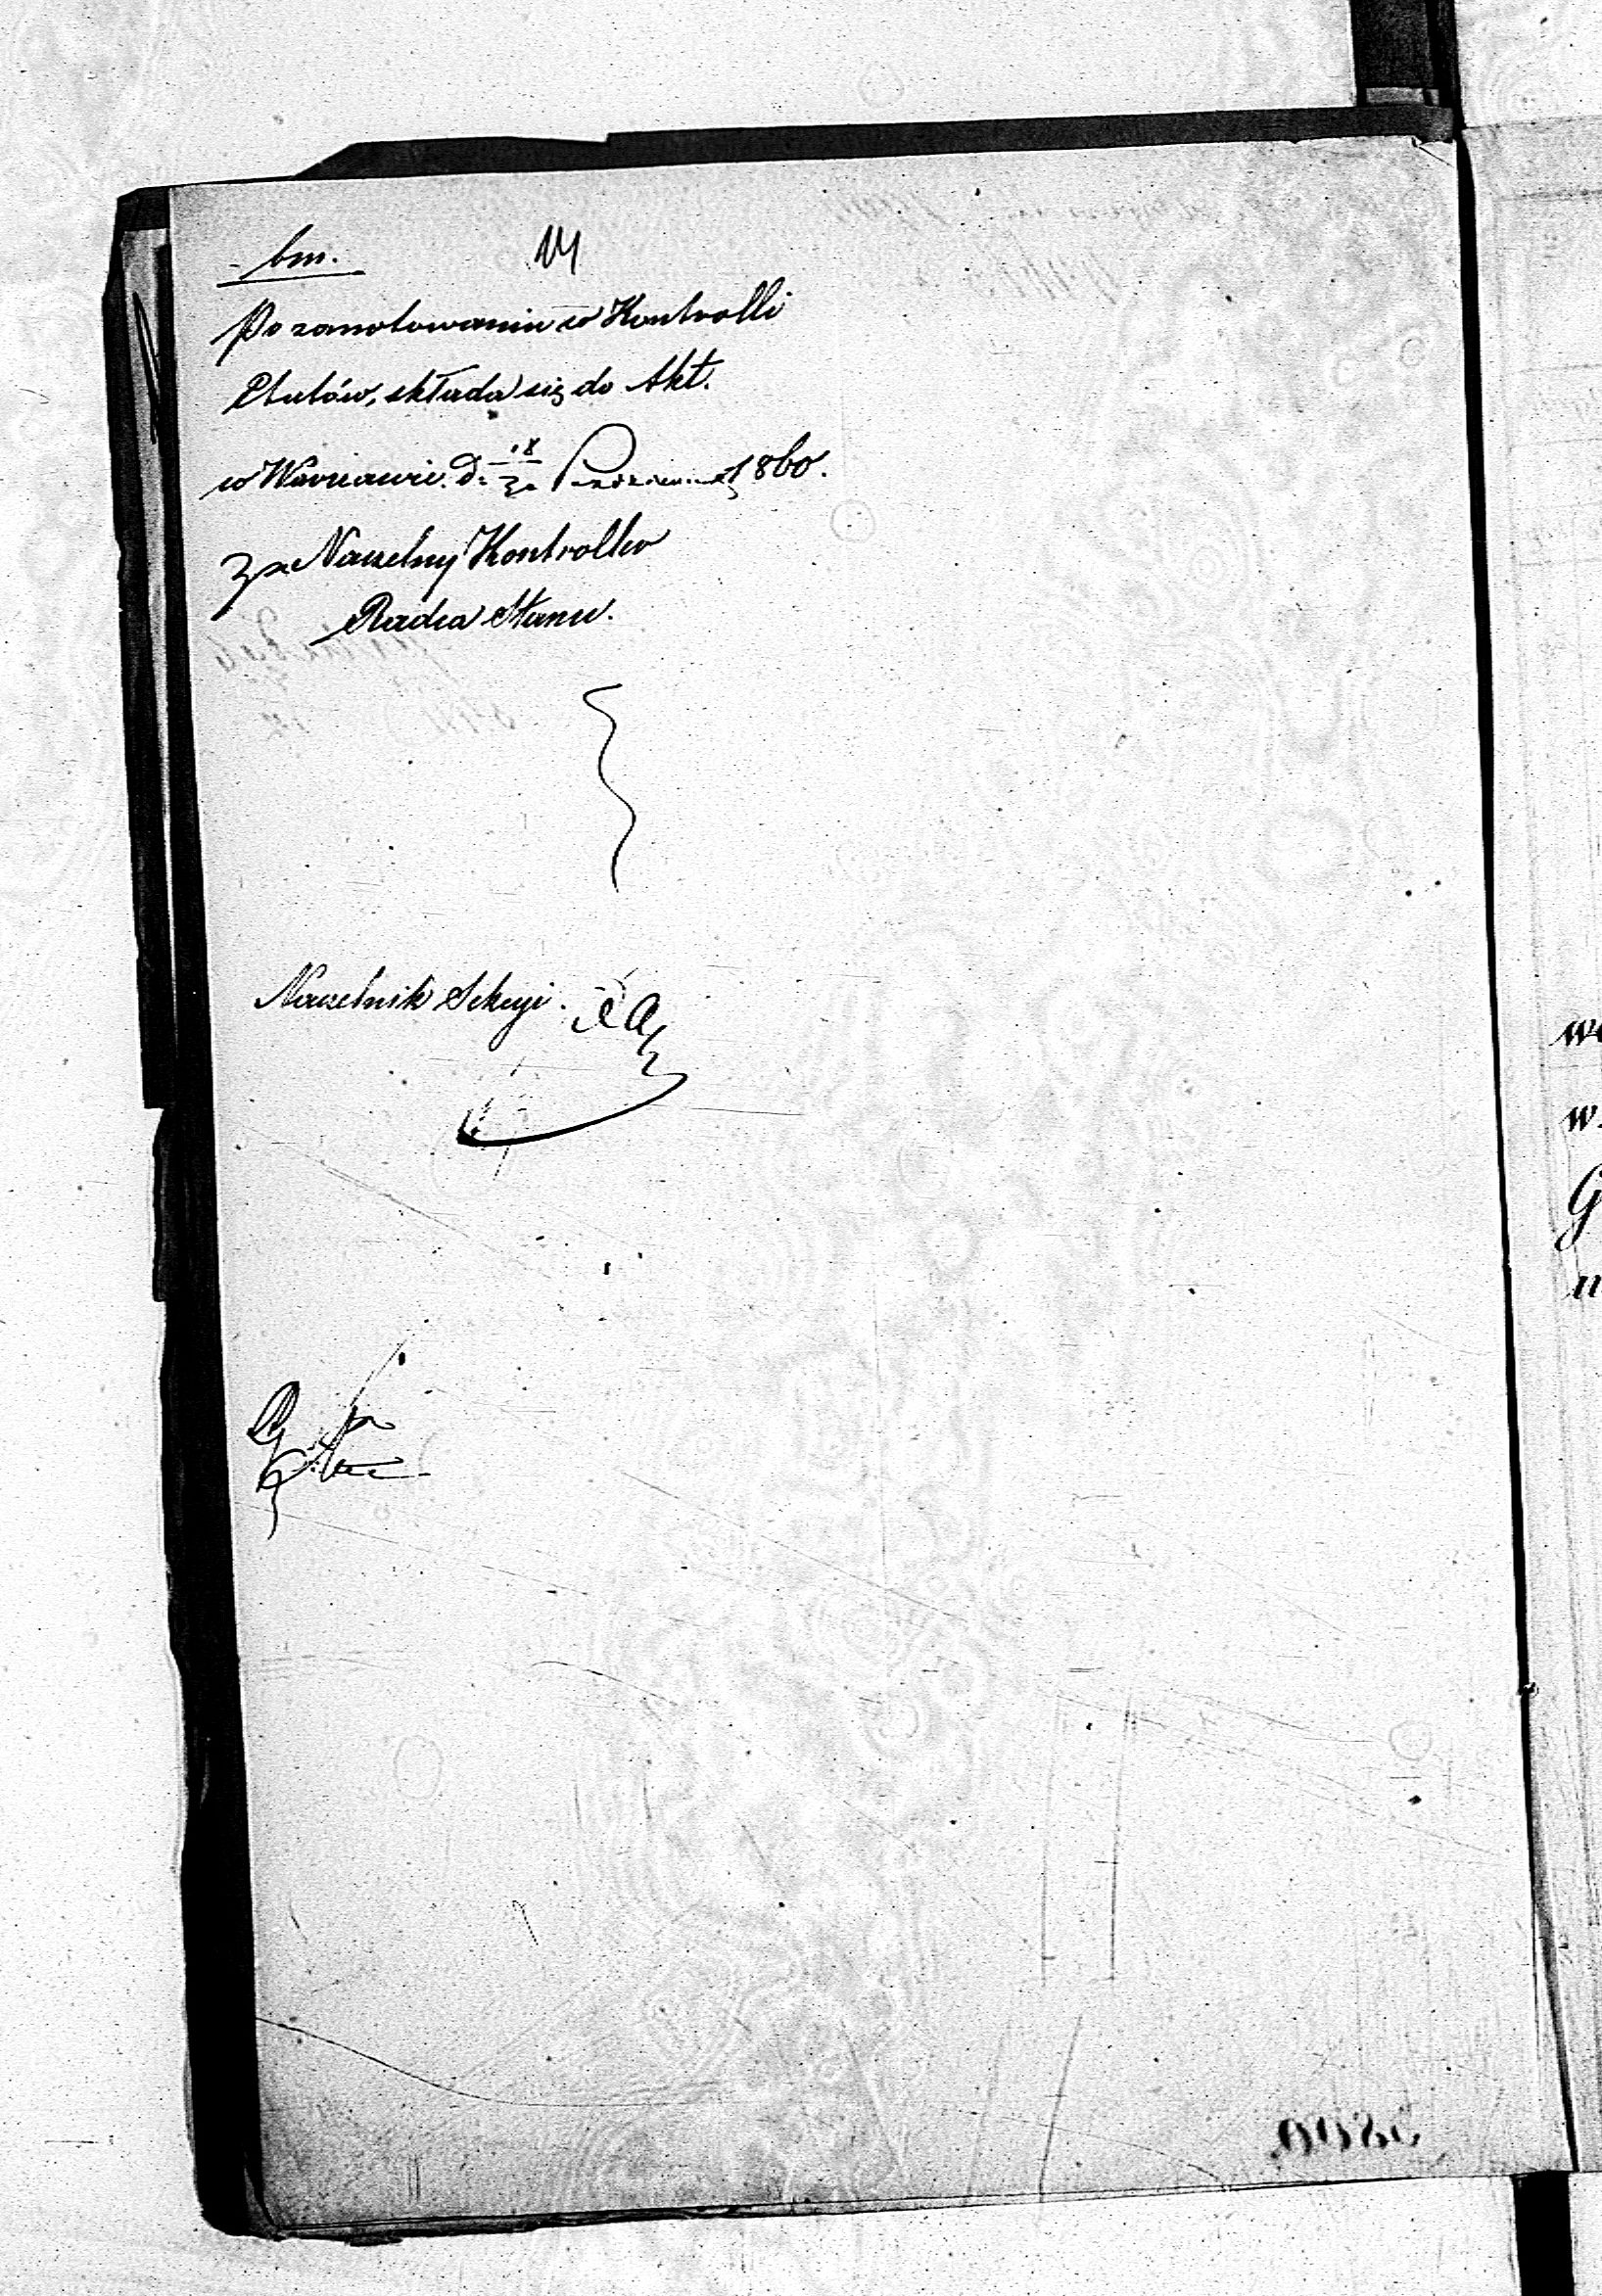 bm. 14
Po zanotowaniu w Kontrolli
Etatów, składa się do Akt.
w Warszawie. d. 18/30 Października 1860.
za Naczelny Kontroller
Radca Stanu.
Naczelnik Sekcyi.